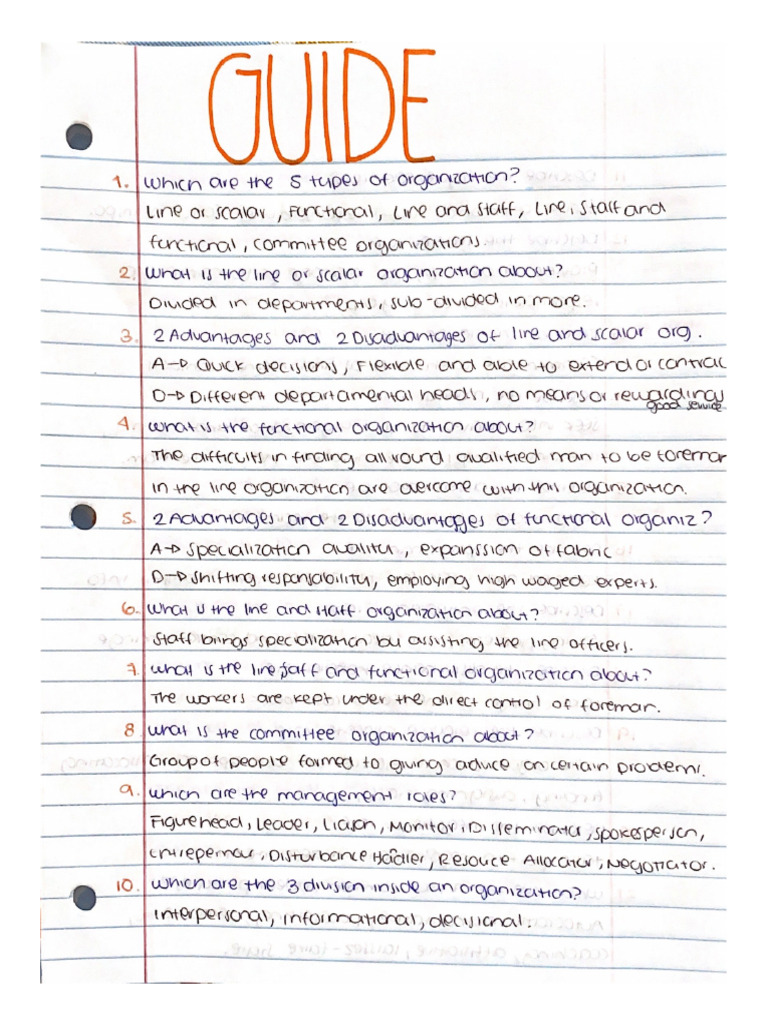 GUIDE
1. Which are the 5 types of organization?
Line or scalar, Functional, Line and Staff, Line, Staff and
functional, committee organizations
2. What is the line or scalar organization about?
Divided in departments, sub-divided in more.
3. 2 Advantages and 2 Disadvantages of line and scalar org.
A→ Quick decisions, Flexible and able to extend or contrac
D→ Different departamental heads, no means or rewardings
good service.
4. What is the functional organization about?
The difficults in finding all round qualified man to be foreman
in the line organization are overcome with this organization.
5. 2 Advantages and 2 Disadvantages of functional organiz?
A→ Specialization quality, expanssion of fabric
D→ Shifting responsability, employing high waged experts.
6. What is the line and staff organization about?
Staff brings specialization by assisting the line officers.
7. What is the line, staff and functional organization about?
The workers are kept under the direct control of foreman.
8 What is the committee organization about?
Group of people formed to giving advice on certain problems.
9. Which are the management roles?
Figurehead, Leader, Liason, Monitor, Disseminator, Spokesperson,
Entreperneur, Disturbance Handler, Resouce Allocator, Negotiator.
10. Which are the 3 division inside an organization?
Interpersonal, informational, decisional.